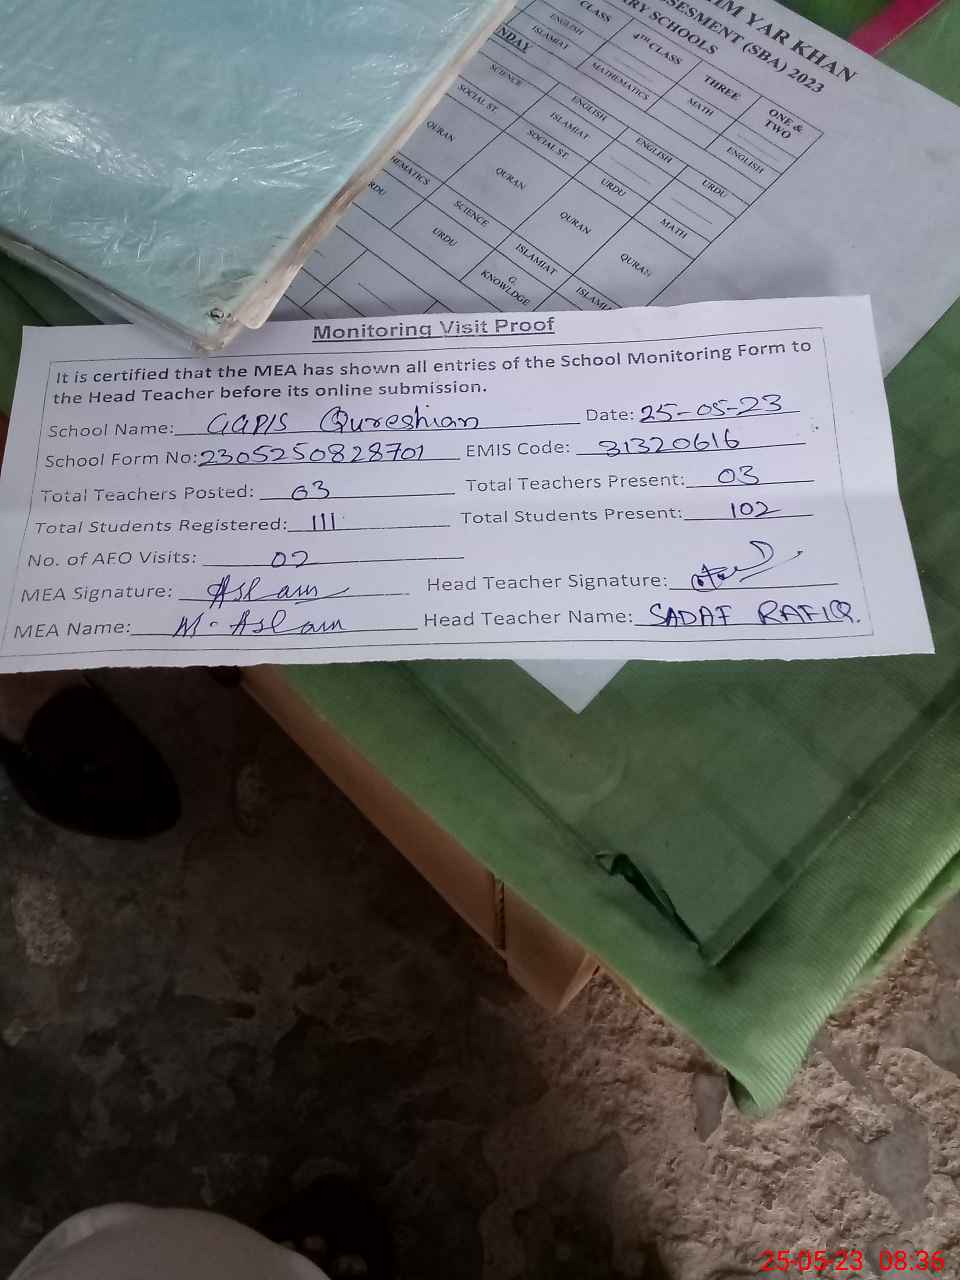 IM YAR KHAN
SESMENT (SBA) 2023
RY SCHOOLS
CLASS
4TH CLASS
THREE
ONE & TWO
ENGLISH
ISLAMIAT
MATHEMATICS
MATH
ENGLISH
NDAY
SCIENCE
ENGLISH
ENGLISH
URDU
SOCIAL ST.
ISLAMIAT
SOCIAL ST.
URDU
MATH
QURAN
QURAN
QURAN
QURAN
HEMATICS
SCIENCE
ISLAMIAT
RDU
URDU
G. KNOWLDGE
Monitoring Visit Proof
It is certified that the MEA has shown all entries of the School Monitoring Form to
the Head Teacher before its online submission.
School Name: GGPIS Qureshian Date: 25-05-23
School Form No: 2305250828701 EMIS Code: 31320616
Total Teachers Posted: 03 Total Teachers Present: 03
Total Students Registered: 111 Total Students Present: 102
No. of AEO Visits: 02
MEA Signature: Aslam Head Teacher Signature:
MEA Name: M. Aslam Head Teacher Name: SADAF RAFIQ.
25-05-23 08:36